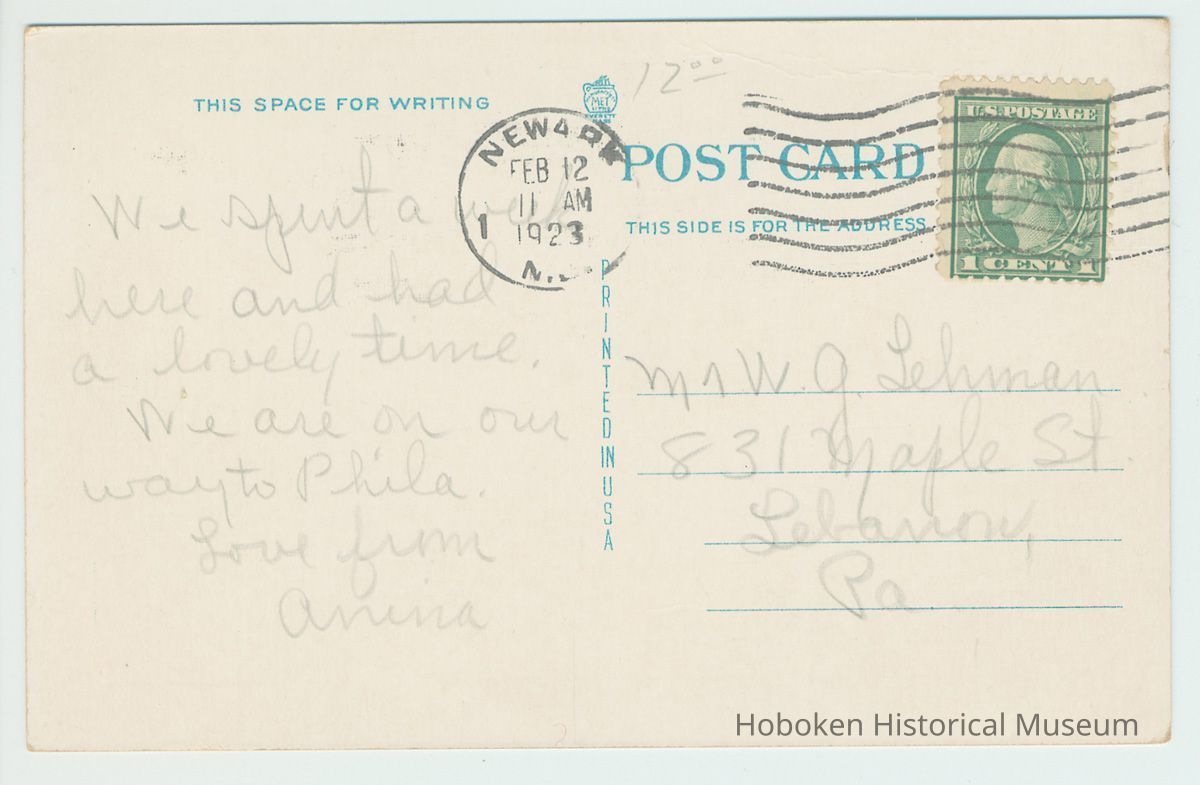 THIS SPACE FOR WRITING
12⁰⁰
MET
EVERETT
MASS
NEWARK
FEB 12
11 AM
1 1923
N.J.
POST CARD
THIS SIDE IS FOR THE ADDRESS
U.S. POSTAGE
1 CENT 1
We spent a week
here and had
a lovely time.
We are on our
way to Phila.
Love from
Anina
PRINTED IN USA
Mr W. G. Lehman
831 Maple St.
Lebanon,
Pa
Hoboken Historical Museum